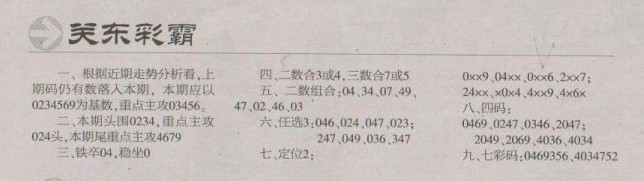 关东彩霸
一、根据近期走势分析看,上
期码仍有数落入本期,本期应以
0234569为基数,重点主攻03456。
二、本期头围0234,重点主攻
024头,本期尾重点主攻4679
三、铁卒04,稳坐0
四、二数合3或4,三数合7或5
五、二数组合:04、34、07、49、
47、02、46、03
六、任选3;046、024、047、023;
247、049、036、347
七、定位2;
0xx9、04xx、0xx6、2xx7;
24xx、x0x4、4xx9、4x6x
八、四码;
0469、0247、0346、2047;
2049、2069、4036、4034
九、七彩码:0469356、4034752